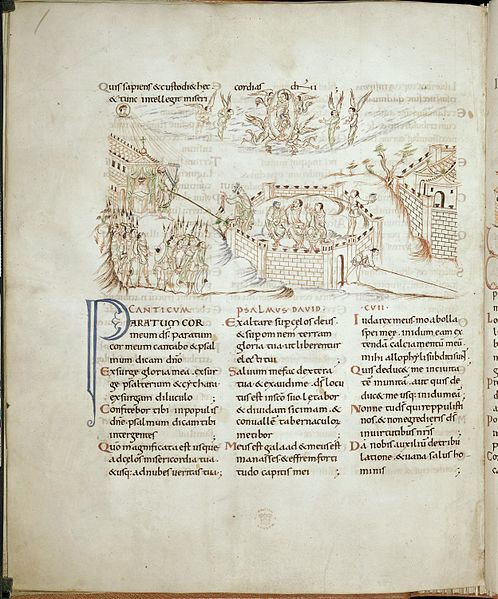 Quis sapiens & custodi& hec
& tunc intellegit miseri
cordias
CANTICUM
PARATUM COR
meum ds paratum
cor meum cantabo & psal
mum dicam dno
Exsurge gloria mea . exsur
ge psalterium & cythara .
exsurgam diluculo ;
Confitebor tibi inpopulis
dne . psalmum dicam tibi
intergentes ;
Quo magnificata est usque
adcelos misericordia tua .
& usq: adnubes veritas tua ;
PSALMUS DAVID .
Exaltare sup celos deus
& sup omnem terram
gloria tua . ut liberentur
electi tui ;
Salvum me fac dextera
tua & exaudi me . ds locu
tus est insco suo l&abor
& dividam sicimam . &
convallem tabernaculor
metibor ;
Meus est galaad & meus est
manasses & effrem forti
tudo capitis mei ;
CVII .
Iuda rex meus moab olla
spei mee . inidumeam ex
tendā calciamentū meū
mihi allophyli subditi sun ;
Quis deduc& me inciuita
tē munitā . aut quis de
duc& me usq: inidumeā ;
Nonne tu ds qui reppulisti
nos . & non egredieris ds
inuirtutibus nris ;
Da nobis auxiliū detribu
latione . & vana salus ho
minis ;